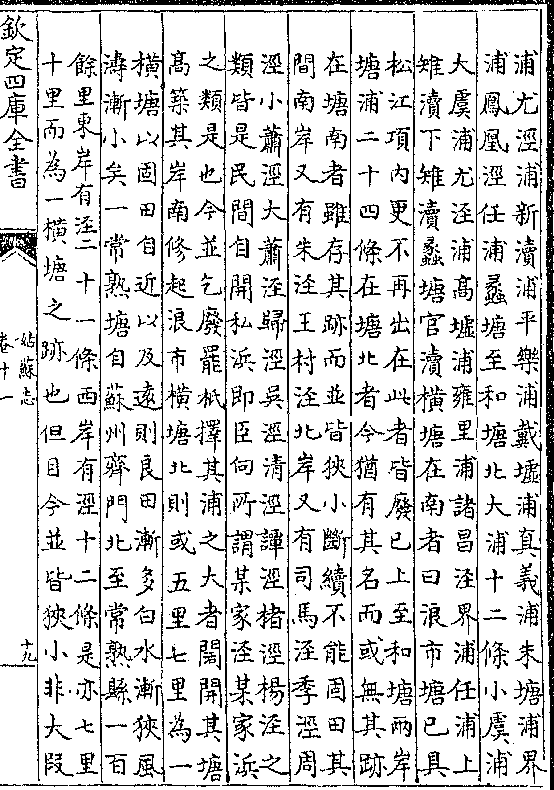 浦尤涇浦新瀆浦平樂浦戴墟浦真義浦朱塘浦界
浦鳳凰涇任浦蠡塘至和塘北大浦十二條小虞浦
大虞浦尤涇浦高墟浦雍里浦諸昌涇界浦任浦上
雉瀆下雉瀆蠡塘官瀆橫塘在南者曰浪市塘已具
松江項內更不再出在此者皆廢已上至和塘兩岸
塘浦二十四條在塘北者今猶有其名而或無其跡
在塘南者雖存其跡而並皆狹小斷續不能固田其
間南岸又有朱涇王村涇北岸又有司馬涇季涇周
涇小蕭涇大蕭涇歸涇吳涇清涇譚涇楮涇楊涇之
類皆是民間自開私浜即臣向所謂某家涇某家浜
之類是也今並乞廢罷秪擇其浦之大者闊開其塘
高築其岸南修起浪市橫塘北則或五里七里為一
橫塘以固田自近以及遠則良田漸多白水漸狹風
濤漸小矣一常熟塘自蘇州齊門北至常熟縣一百
餘里東岸有涇二十一條西岸有涇十二條是亦七里
十里而為一橫塘之跡也但目今並皆狹小非大叚
欽定四庫全書
姑蘇志
卷十一
十九